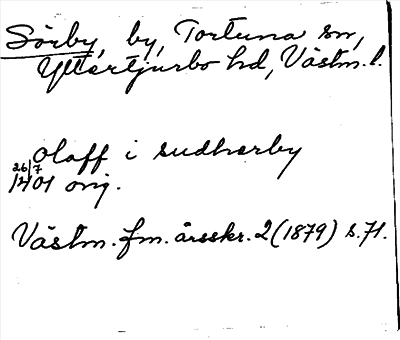 Sörby, by, Tortuna sn,
Yttertjurbo hd, Västm. l.
Olaff i sudherby
26/7
1401 orig.
Västm. fm. årsskr. 2 (1879) s. 71.